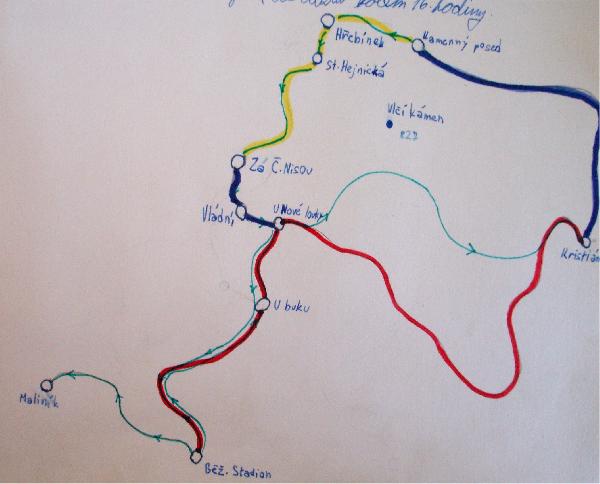 kolem 16. hodiny.
Hřebínek
Kamenný posed
St. Hejnická
Vlčí kámen
Zá Č. Nisou
Vládní
U Nové louky
Kristián
U buku
Maliník
Běž. Stadion